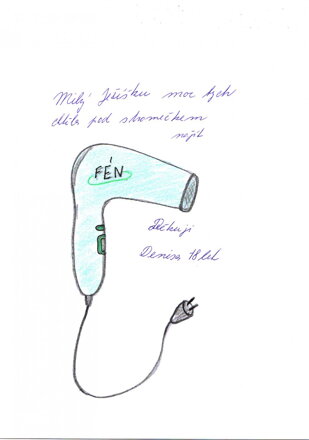 Milý Ježíšku moc bych
chtěla pod stromečkem
najít
FÉN
Děkuji
Denisa 18 let